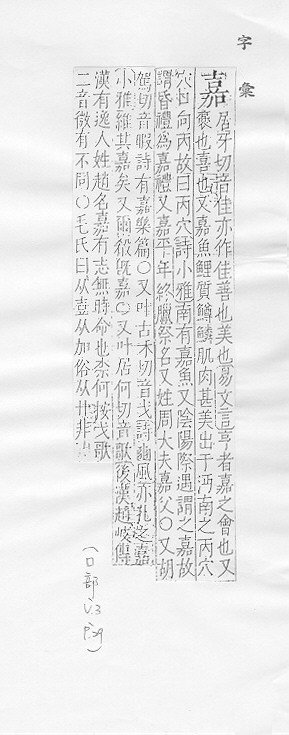 字彙
嘉居牙切音佳亦作佳善也美也易文言亨者嘉之會也又
褒也喜也又嘉魚鯉質鱒鱗肌肉甚美出于沔南之丙穴
穴口向丙故曰丙穴詩小雅南有嘉魚又陰陽際遇謂之嘉故
謂昏禮爲嘉禮又嘉平年終臘祭名又姓周大夫嘉父〇又胡
駕切音暇詩有嘉樂篇〇又叶古禾切音戈詩豳風亦孔之嘉
小雅維其嘉矣又爾殽既嘉〇又叶居何切音歌後漢趙岐傳
漢有逸人姓趙名嘉有志無時命也柰何按戈歌
二音微有不同〇毛氏曰从壴从加俗从廿非
(口部
V.3
P.29)